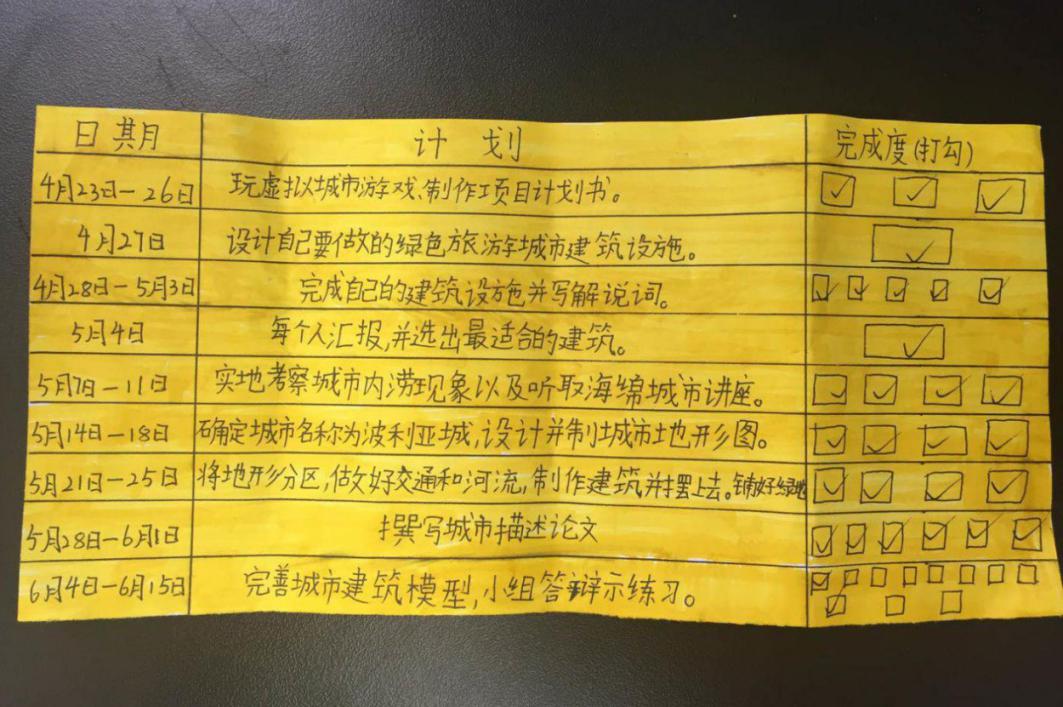 日期月 计划 完成度(打勾)
4月23日-26日 玩虚拟城市游戏、制作项目计划书。
4月27日 设计自己要做的绿色旅游城市建筑设施。
4月28日-5月3日 完成自己的建筑设施并写解说词。
5月4日 每个人汇报,并选出最适合的建筑。
5月7日-11日 实地考察城市内涝现象以及听取海绵城市讲座。
5月14日-18日 确定城市名称为波利亚城,设计并制城市地形图。
5月21日-25日 将地形分区,做好交通和河流,制作建筑并摆上去。铺好绿地
5月28日-6月1日 撰写城市描述论文
6月4日-6月15日 完善城市建筑模型,小组答辩示练习。